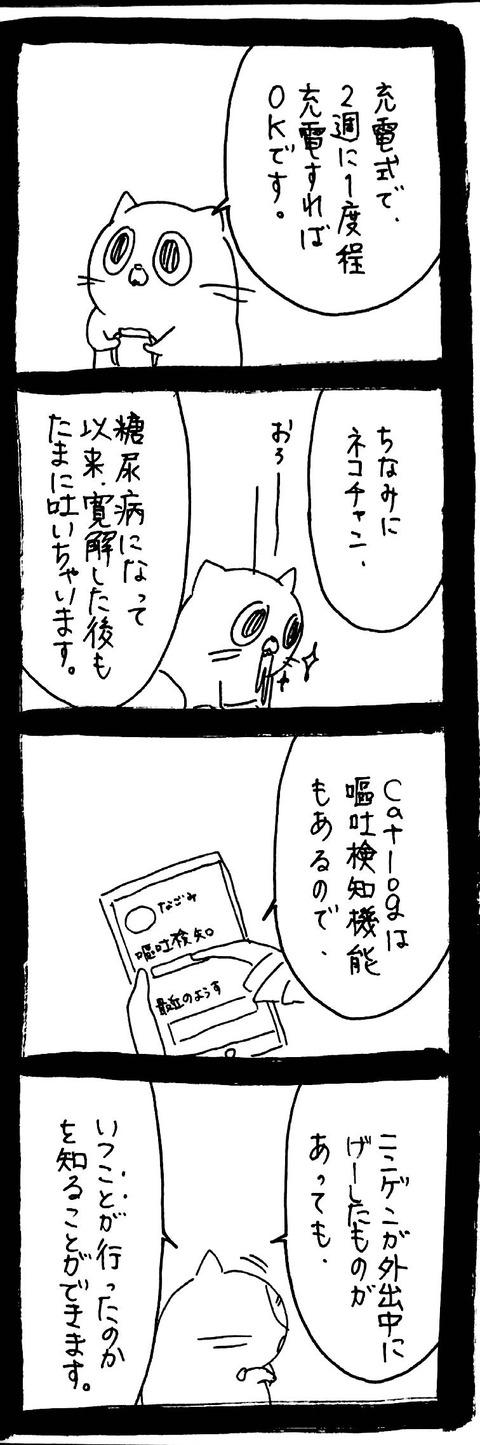 充電式で、
2週に1度程
充電すれば
OKです。
ちなみに
ネコチャン、
おろ
糖尿病になって
以来、寛解した後も
たまに吐いちゃいます。
Catlogは
嘔吐検知機能
もあるので、
なごみ
嘔吐検知
最近のようす
ニンゲンが外出中に
げーしたものが
あっても、
いつことが行ったのか
を知ることができます。